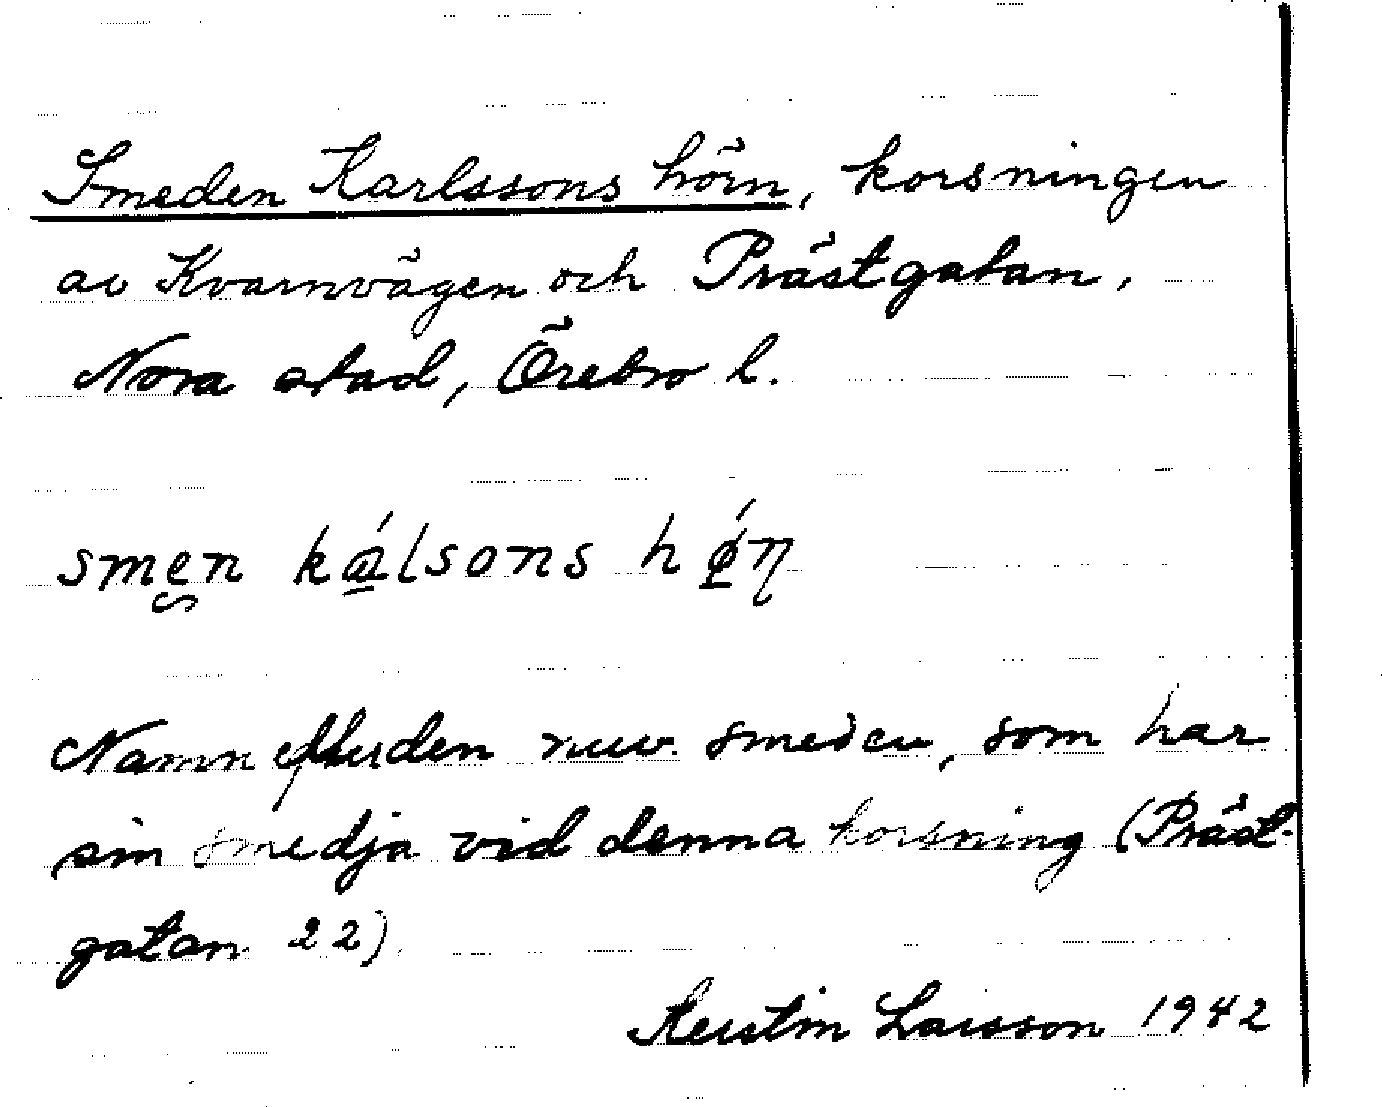 Smeden Karlssons hörn, korsningen
av Kvarnvägen och Prästgatan,
Nora stad, Örebro l.
smen ká̱lsons hǿ̱ɳ
Namn efter den nuv. smeden, som har
sin smedja vid denna korsning (Präst-
gatan 22)
Kerstin Larsson 1942